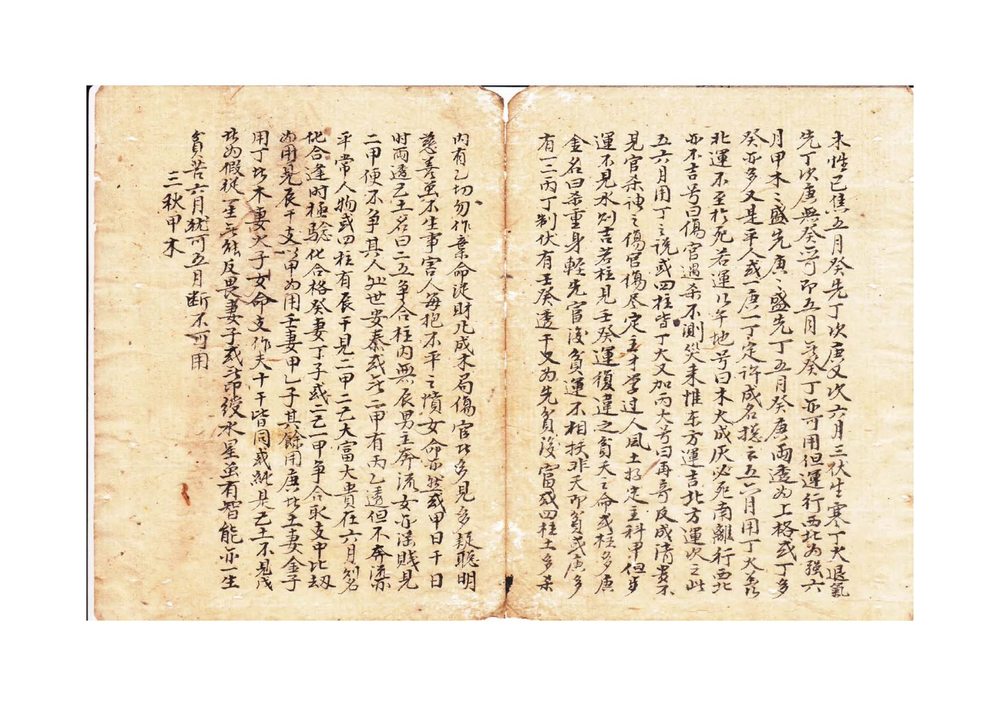 木性已焦五月癸先丁次庚又次六月三伏生寒丁火退氣
先丁次庚無癸亦可即五月若癸丁亦可用但運行西北為強六
月甲木之盛先庚之盛先丁五月癸庚兩透為上格或丁多
癸亦多又是平人或一庚一丁定許成名総言五六月用丁火之
北運不至於死若運行午地号曰木火成灰必死南離行西北
亦不吉号曰傷官遇杀不測災来推东方運吉北方運次之此
五六月用丁之説或四柱皆丁火又加丙火号曰再奇反成清貴不
見官杀神之傷官傷尽定主才学過人風土好定主科甲但歩
運不見水則吉若柱見壬癸運復違之貧夭之命或柱多庚
金名曰杀重身軽先富後貧運不相扶非夭即貧或庚多
有一二丙丁制伏有壬癸透干又為先貧後富或四柱土多杀
内有乙切勿作棄命従財凡成木局傷官此多見多疑聡明
慈善虽不生事害人每抱不平之憤女命亦然或甲日午日
时兩透己土名曰二五争合柱内無辰男主奔流女主淫賎見
二甲便不争其人处世安泰或此二甲有丙乙透但不奔流
平常人物或四柱有辰干見二甲二己大富大貴在六月別名
化合逢时極驗化合格癸妻丁子或二己一甲争合取支中比劫
為用見辰干支以甲為用壬妻甲乙子其餘用庚此土妻金子
用丁此木妻火子女命支作夫十干皆同或純是己土不見戊
此為假従一生無能反畏妻子或无印綬水星虽有智能亦一生
貧苦六月犹可五月断不可用
三秋甲木